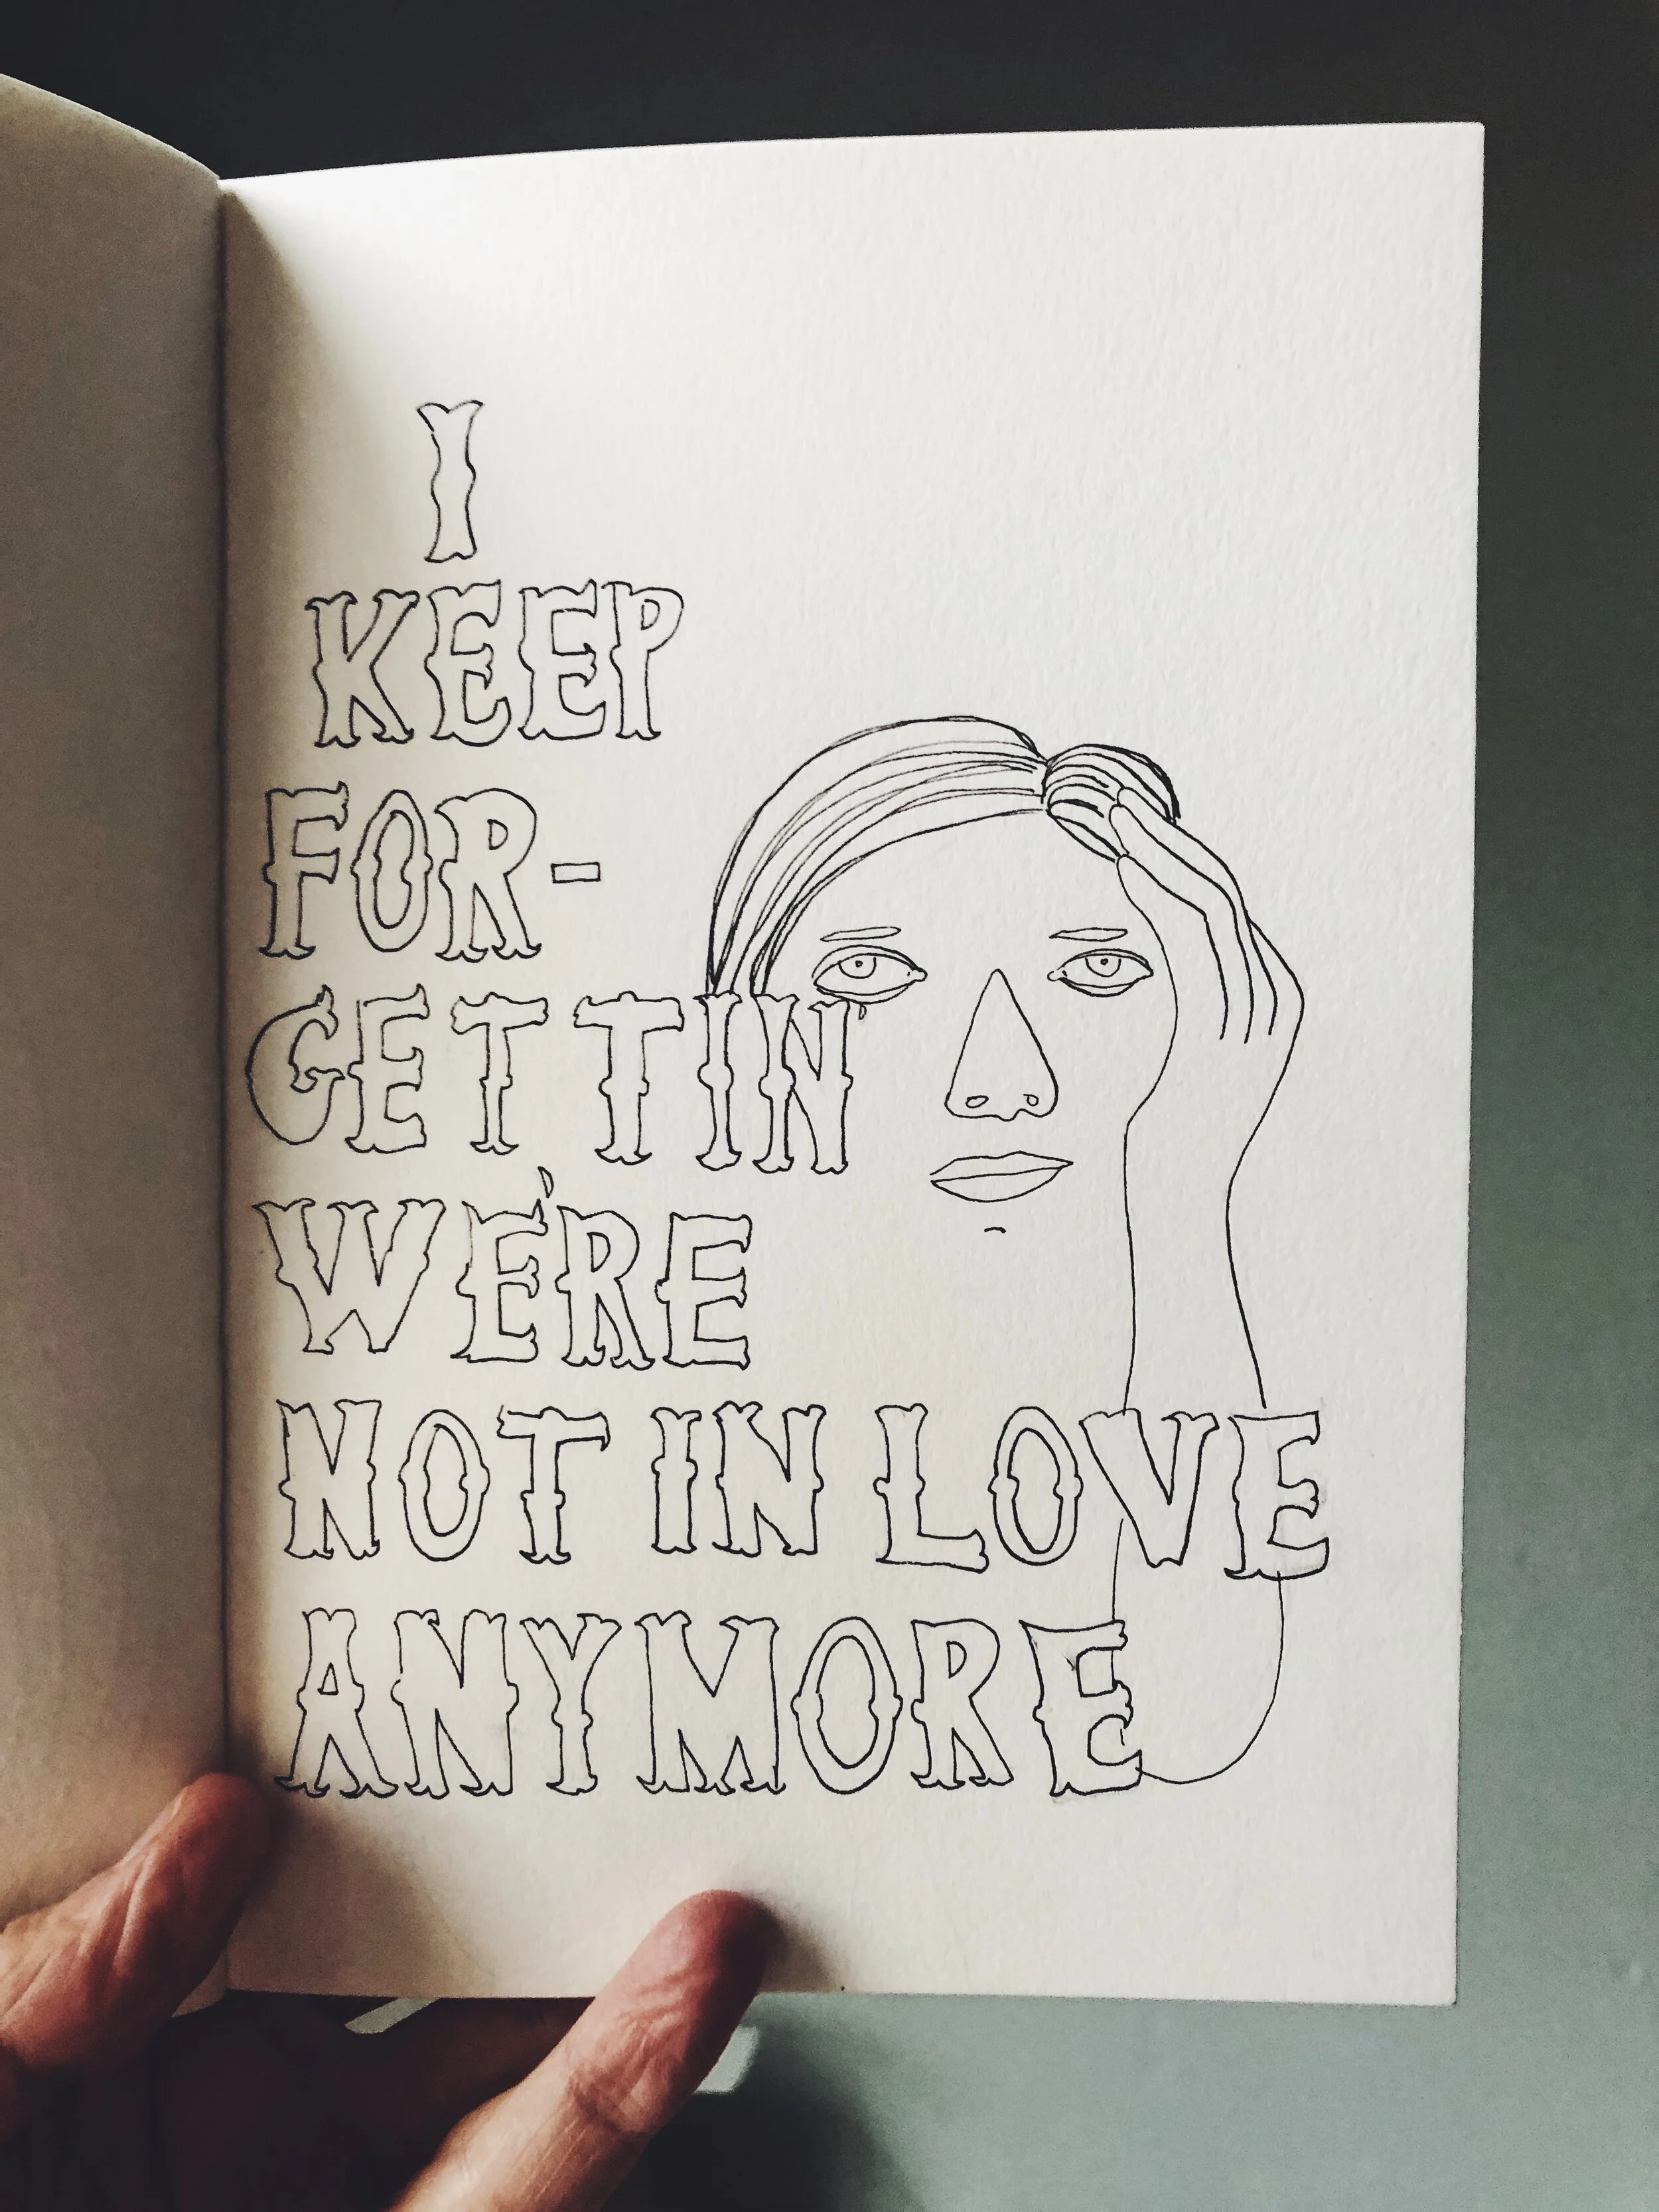 I
KEEP
FOR-
GETTIN
WE'RE
NOT IN LOVE
ANYMORE